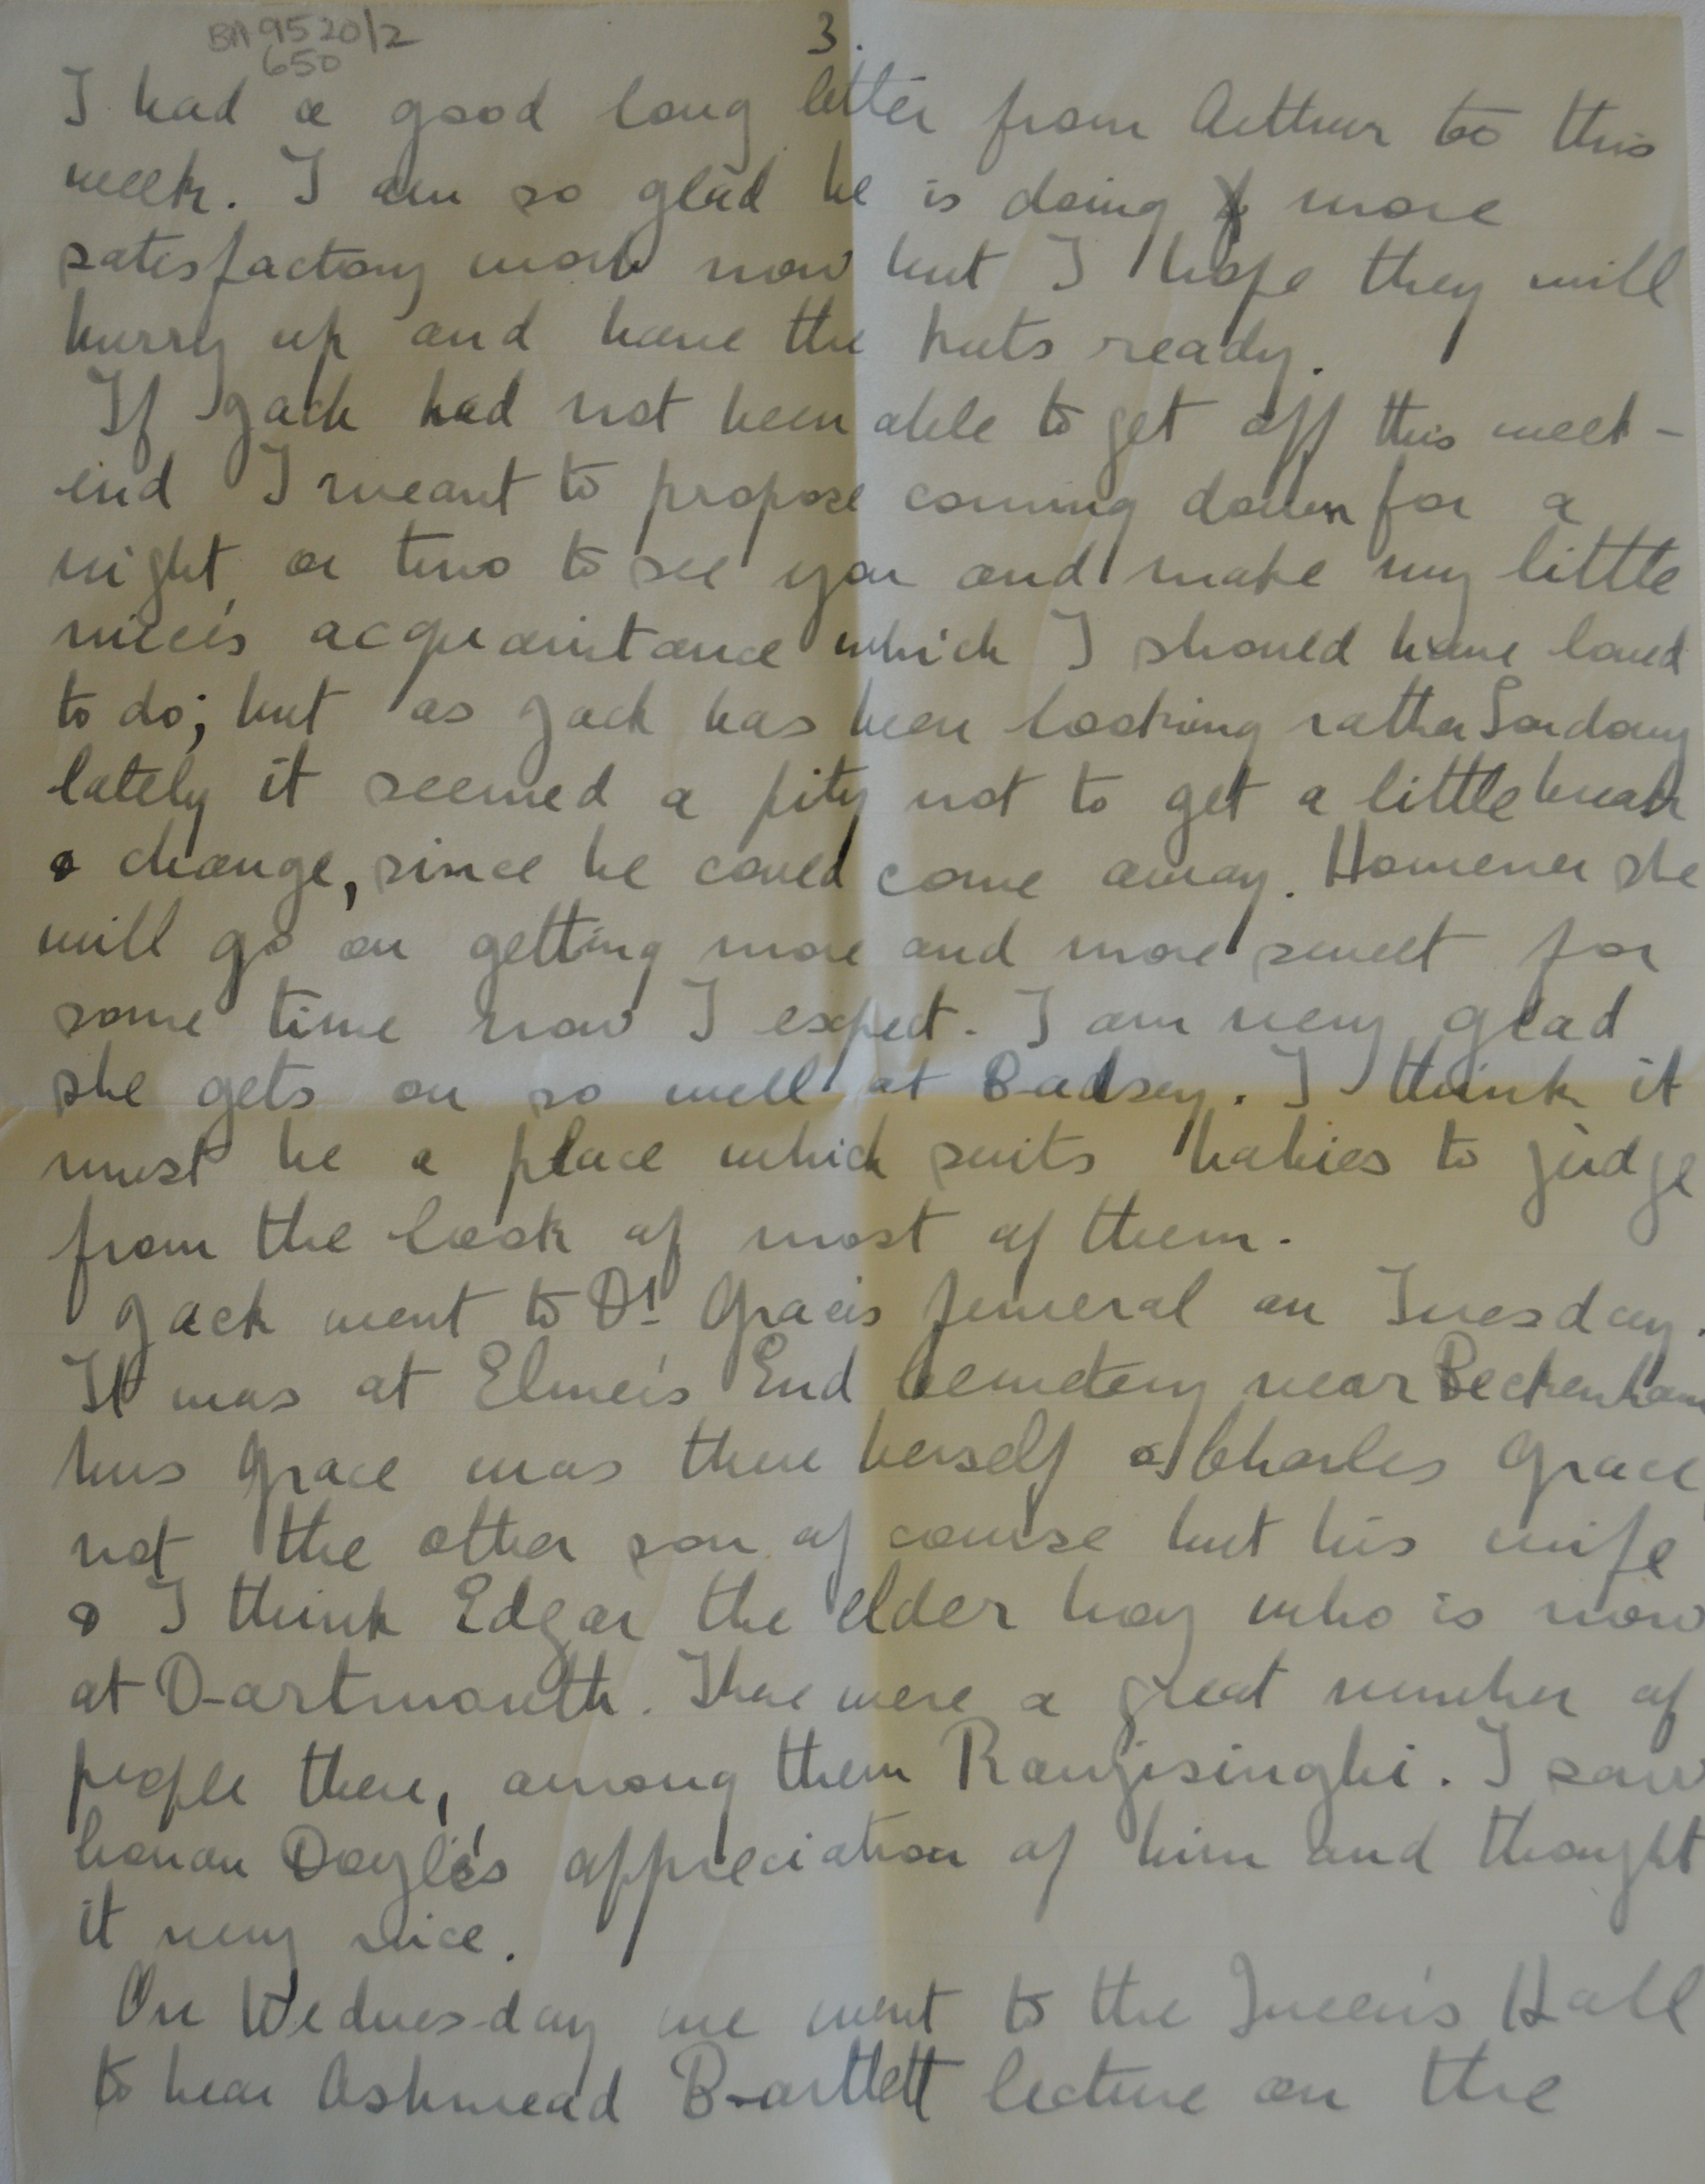 BA 9520/2
650
3.
I had a good long letter from Arthur too this
week. I am so glad he is doing more
satisfactory work now but I hope they will
hurry up and have the huts ready.
If Jack had not been able to get off this week-
end I meant to propose coming down for a
night or two to see you and make my little
niece's acquaintance which I should have loved
to do; but as Jack has been looking rather Londony
lately it seemed a pity not to get a little break
& change, since he could come away. However she
will go on getting more and more sweet for
some time now I expect. I am very glad
she gets on so well at Badsey. I think it
must be a place which suits babies to judge
from the look of most of them.
Jack went to Dr Grace's funeral on Tuesday.
It was at Elmer's End Cemetery near Beckenham
Mrs Grace was there herself & Charles Grace
not the other son of course but his wife
& I think Edgar the elder boy who is now
at Dartmouth. There were a great number of
people there, among them Ranjisinghi. I saw
Conan Doyle's appreciation of him and thought
it very nice.
On Wednesday we went to the Queen's Hall
to hear Ashmead Bartlett lecture on the